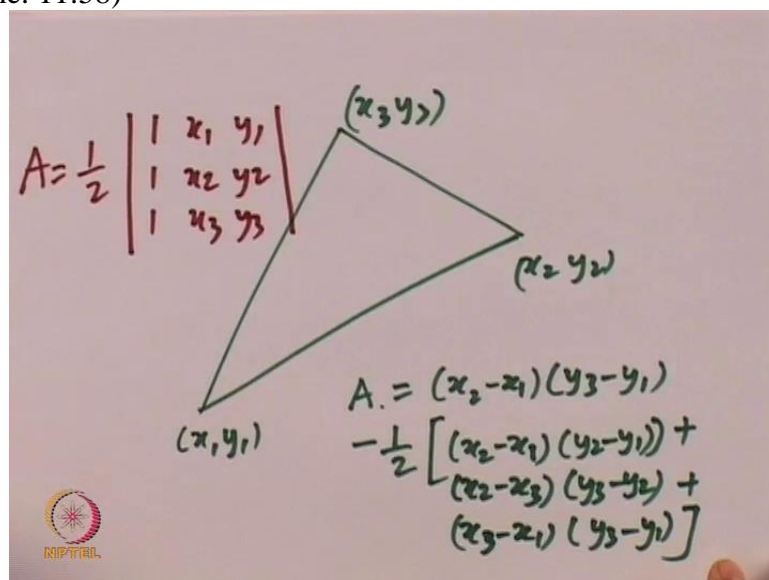 ne: 11:58)
(x3 y3)
A = 1/2 | 1 x1 y1 |
| 1 x2 y2 |
| 1 x3 y3 |
(x2 y2)
(x, y1)
A. = (x2-x1) (y3-y1)
- 1/2 [ (x2-x1) (y2-y1)) +
(x2-x3) (y3-y2) +
(x3-x1) (y3-y1) ]
NPTEL